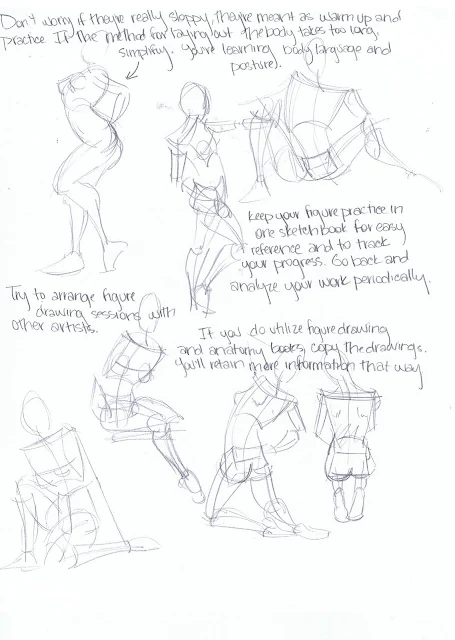 Don't worry if they're really sloppy, they're meant as warm up and
practice If the method for laying out the body takes too long,
simplify. You're learning body language and
posture).
keep your figure practice in
one sketchbook for easy
reference and to track
your progress. Go back and
analyze your work periodically.
Try to arrange figure
drawing sessions with
other artists.
If you do utilize figure drawing
and anatomy books, copy the drawings.
You'll retain more information that way